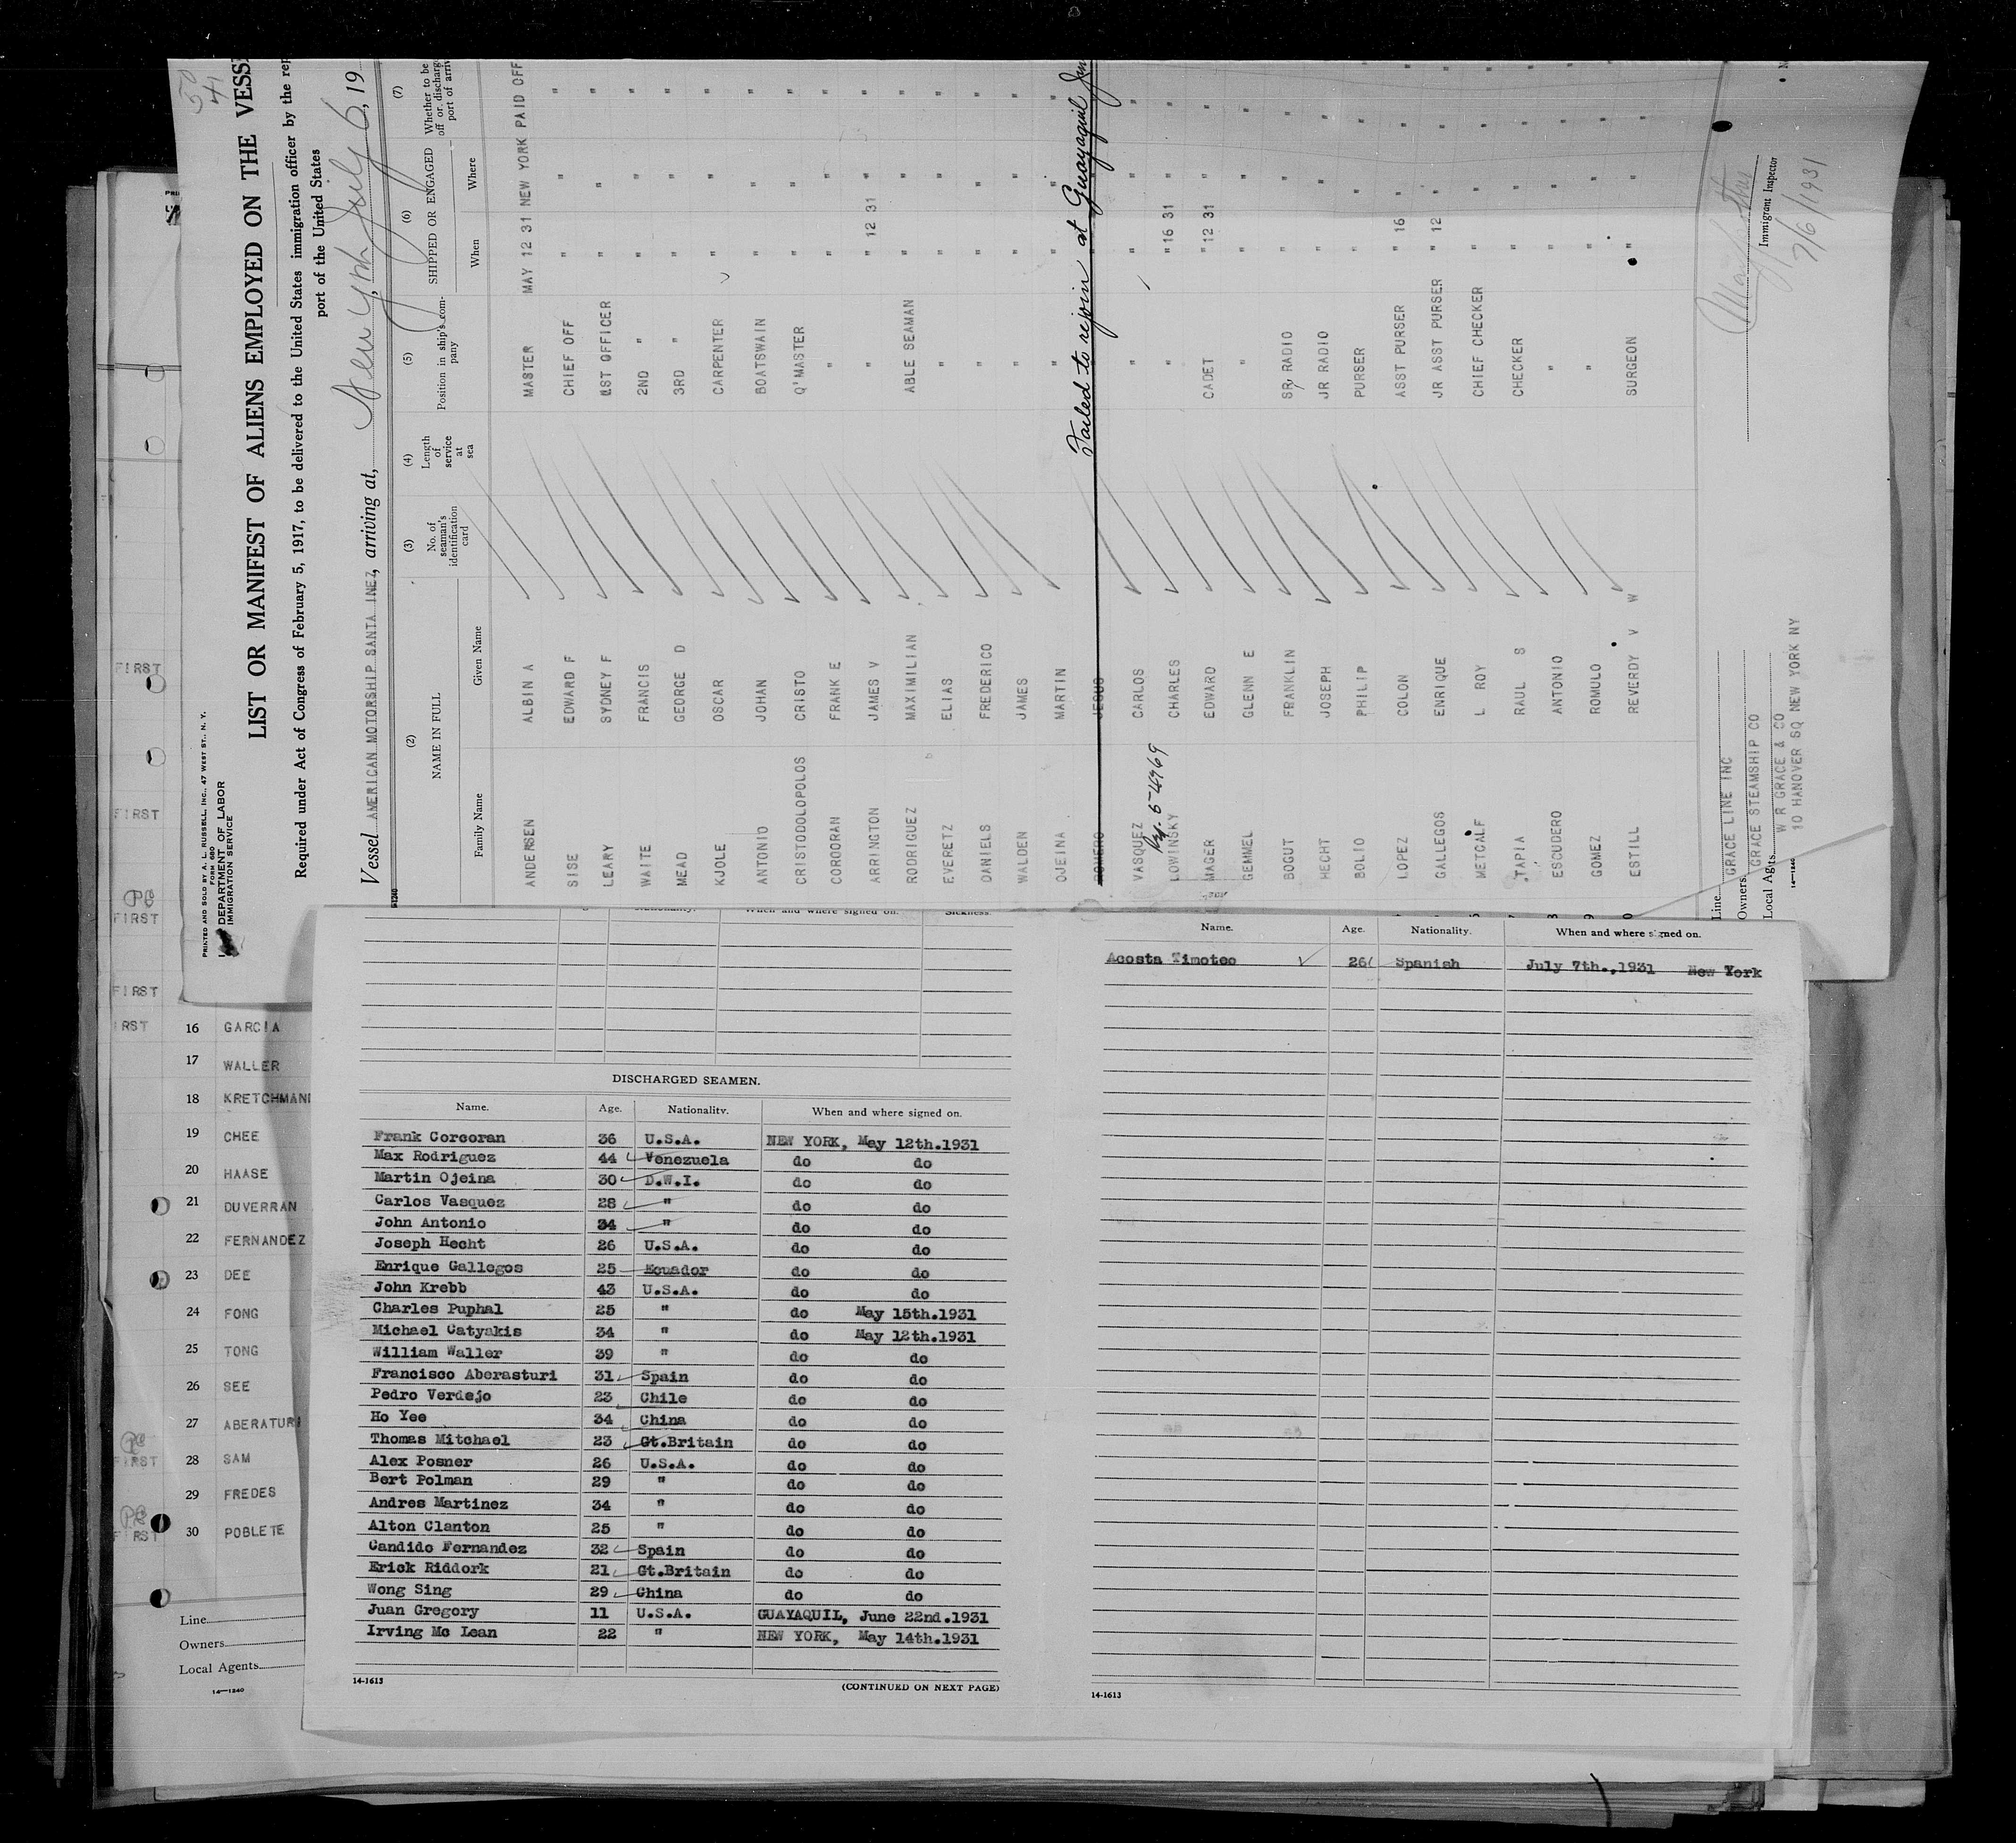 LIST OR MANIFEST OF ALIENS EMPLOYED ON THE
PRINTED AND SOLD BY A. L. RUSSELL, INC., 47 WEST ST., N. Y.
FORM 680
DEPARTMENT OF LABOR
IMMIGRATION SERVICE
Required under Act of Congress of February 5, 1917, to be delivered to the United States immigration officer by the
port of the United States
Vessel AMERICAN MOTORSHIP SANTA INEZ, arriving at, New York July 6, 19
(2) (3) (4) (5) (6) (7)
NAME IN FULL No. of seaman's identification card Length of service at sea Position in ship's company SHIPPED OR ENGAGED Whether to be
Family Name Given Name When Where
ANDERSEN ALBIN A MASTER MAY 12 31 NEW YORK PAID OFF
SISE EDWARD F CHIEF OFF " " "
LEARY SYDNEY F 1ST OFFICER " " "
WAITE FRANCIS 2ND " " " "
MEAD GEORGE D 3RD " " " "
KJOLE OSCAR CARPENTER " " "
ANTONIO JOHAN BOATSWAIN " " "
CRISTODOLOPOLOS CRISTO Q'MASTER " " "
CORCORAN FRANK E " " " "
ARRINGTON JAMES V " " 12 31 " "
RODRIGUEZ MAXIMILIAN ABLE SEAMAN " " "
EVERETZ ELIAS " " " "
DANIELS FREDERICO " " " "
WALDEN JAMES " " " "
OJEINA MARTIN " " " "
ROMERO JESUS Failed to rejoin at Guayaquil
VASQUEZ CARLOS " " " "
LOWINSKY CHARLES " " 16 31 " "
MAGER EDWARD CADET " 12 31 " "
GEMMEL GLENN E " " " "
BOGUT FRANKLIN SR RADIO " " "
HECHT JOSEPH JR RADIO " " "
BOLIO PHILIP PURSER " " "
LOPEZ COLON ASST PURSER " 16 " "
GALLEGOS ENRIQUE JR ASST PURSER " 12 " "
METCALF L ROY CHIEF CHECKER " " "
TAPIA RAUL S CHECKER " " "
ESCUDERO ANTONIO " " " "
GOMEZ ROMULO " " " "
ESTILL REVERDY V W SURGEON " " "
Line GRACE LINE INC
Owners GRACE STEAMSHIP CO
Local Agents W R GRACE & CO
10 HANOVER SQ NEW YORK NY
14—1240
Immigrant Inspector
7/6/1931
FIRST
FIRST
FIRST
FIRST
IRST
16 GARCIA
17 WALLER
18 KRETCHMAN
19 CHEE
20 HAASE
21 DUVERRAN
22 FERNANDEZ
23 DEE
24 FONG
25 TONG
26 SEE
27 ABERATURI
FIRST 28 SAM
29 FREDES
FIRST 30 POBLETE
Line
Owners
Local Agents
14—1240
Nationality. When and where signed on. Sickness.
DISCHARGED SEAMEN.
Name. Age. Nationality. When and where signed on.
Frank Corcoran 36 U.S.A. NEW YORK, May 12th.1931
Max Rodriguez 44 Venezuela do do
Martin Ojeina 30 D.W.I. do do
Carlos Vasquez 28 " do do
John Antonio 34 " do do
Joseph Hecht 26 U.S.A. do do
Enrique Gallegos 25 Ecuador do do
John Krebb 43 U.S.A. do do
Charles Puphal 25 " do May 15th.1931
Michael Catyakis 34 " do May 12th.1931
William Waller 39 " do do
Francisco Aberasturi 31 Spain do do
Pedro Verdejo 23 Chile do do
Ho Yee 34 China do do
Thomas Mitchael 23 Gt.Britain do do
Alex Posner 26 U.S.A. do do
Bert Polman 29 " do do
Andres Martinez 34 " do do
Alton Clanton 25 " do do
Candido Fernandez 32 Spain do do
Erick Riddork 21 Gt.Britain do do
Wong Sing 29 China do do
Juan Gregory 11 U.S.A. GUAYAQUIL, June 22nd.1931
Irving Mc Lean 22 " NEW YORK, May 14th.1931
14-1613
(CONTINUED ON NEXT PAGE)
Name. Age. Nationality. When and where signed on.
Acosta Timoteo 26 Spanish July 7th.,1931 New York
14-1613